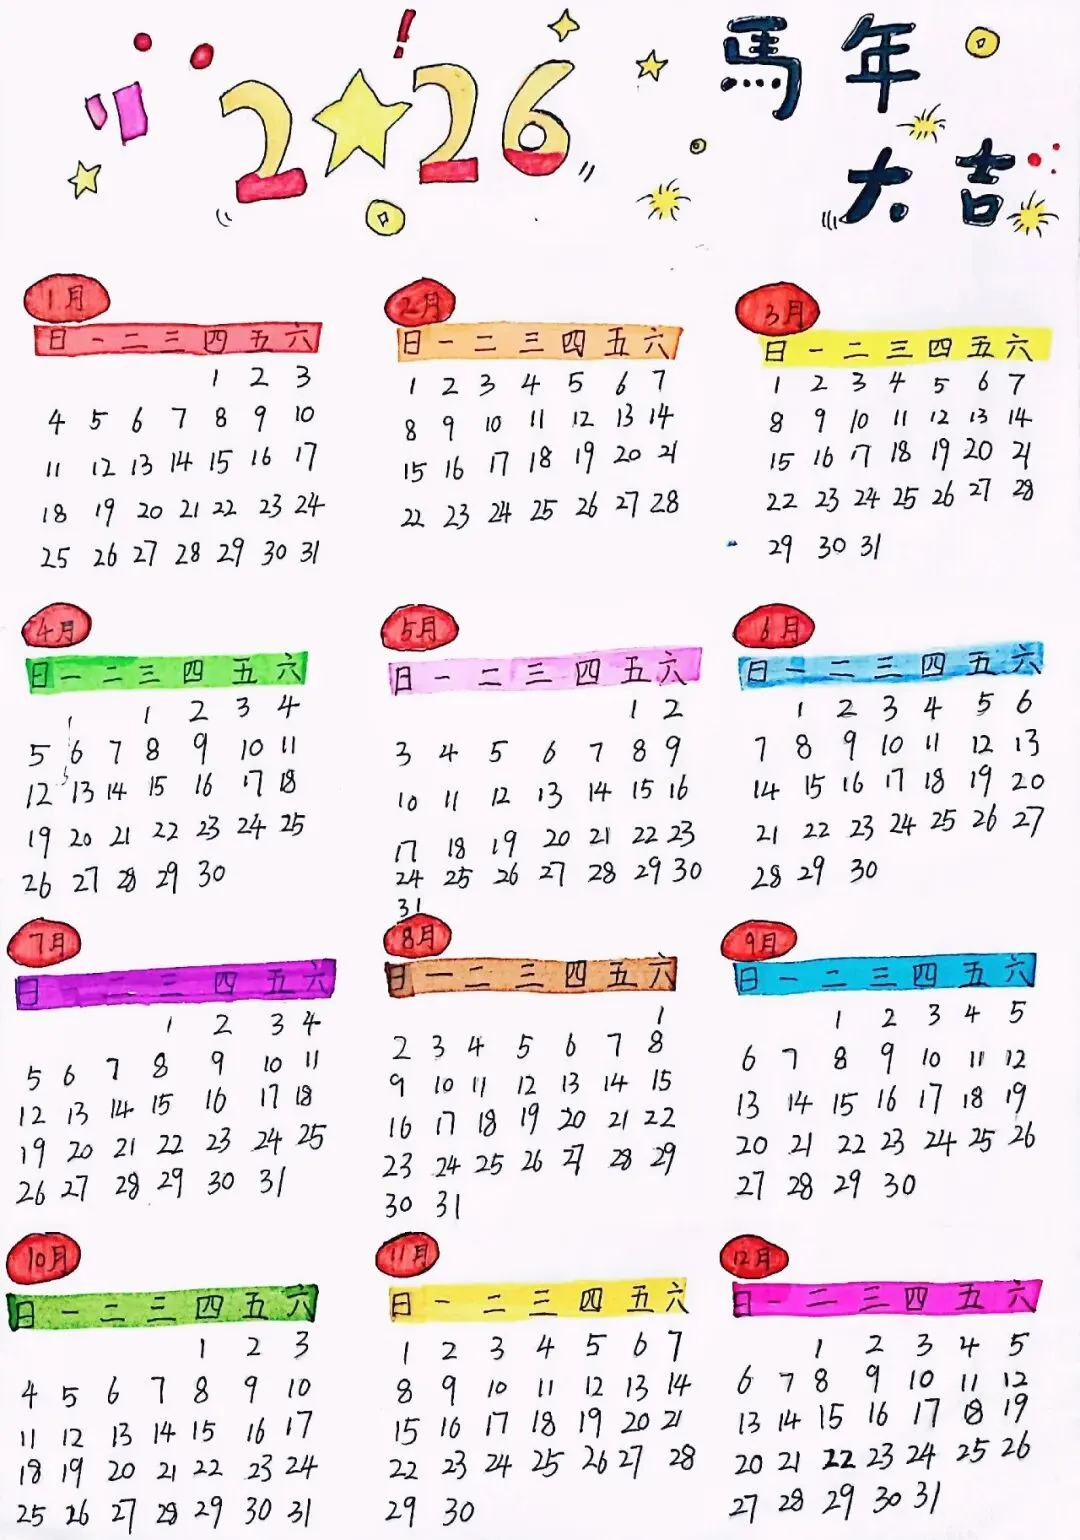 2★26
馬年
大吉
1月
日 一 二 三 四 五 六
1 2 3
4 5 6 7 8 9 10
11 12 13 14 15 16 17
18 19 20 21 22 23 24
25 26 27 28 29 30 31
2月
日 一 二 三 四 五 六
1 2 3 4 5 6 7
8 9 10 11 12 13 14
15 16 17 18 19 20 21
22 23 24 25 26 27 28
3月
日 一 二 三 四 五 六
1 2 3 4 5 6 7
8 9 10 11 12 13 14
15 16 17 18 19 20 21
22 23 24 25 26 27 28
29 30 31
4月
日 一 二 三 四 五 六
1 2 3 4
5 6 7 8 9 10 11
12 13 14 15 16 17 18
19 20 21 22 23 24 25
26 27 28 29 30
5月
日 一 二 三 四 五 六
1 2
3 4 5 6 7 8 9
10 11 12 13 14 15 16
17 18 19 20 21 22 23
24 25 26 27 28 29 30
31
6月
日 一 二 三 四 五 六
1 2 3 4 5 6
7 8 9 10 11 12 13
14 15 16 17 18 19 20
21 22 23 24 25 26 27
28 29 30
7月
日 二 三 四 五 六
1 2 3 4
5 6 7 8 9 10 11
12 13 14 15 16 17 18
19 20 21 22 23 24 25
26 27 28 29 30 31
8月
日 一 二 三 四 五 六
1
2 3 4 5 6 7 8
9 10 11 12 13 14 15
16 17 18 19 20 21 22
23 24 25 26 27 28 29
30 31
9月
日 一 二 三 四 五 六
1 2 3 4 5
6 7 8 9 10 11 12
13 14 15 16 17 18 19
20 21 22 23 24 25 26
27 28 29 30
10月
日 一 二 三 四 五 六
1 2 3
4 5 6 7 8 9 10
11 12 13 14 15 16 17
18 19 20 21 22 23 24
25 26 27 28 29 30 31
11月
日 一 二 三 四 五 六
1 2 3 4 5 6 7
8 9 10 11 12 13 14
15 16 17 18 19 20 21
22 23 24 25 26 27 28
29 30
12月
日 一 二 三 四 五 六
1 2 3 4 5
6 7 8 9 10 11 12
13 14 15 16 17 18 19
20 21 22 23 24 25 26
27 28 29 30 31